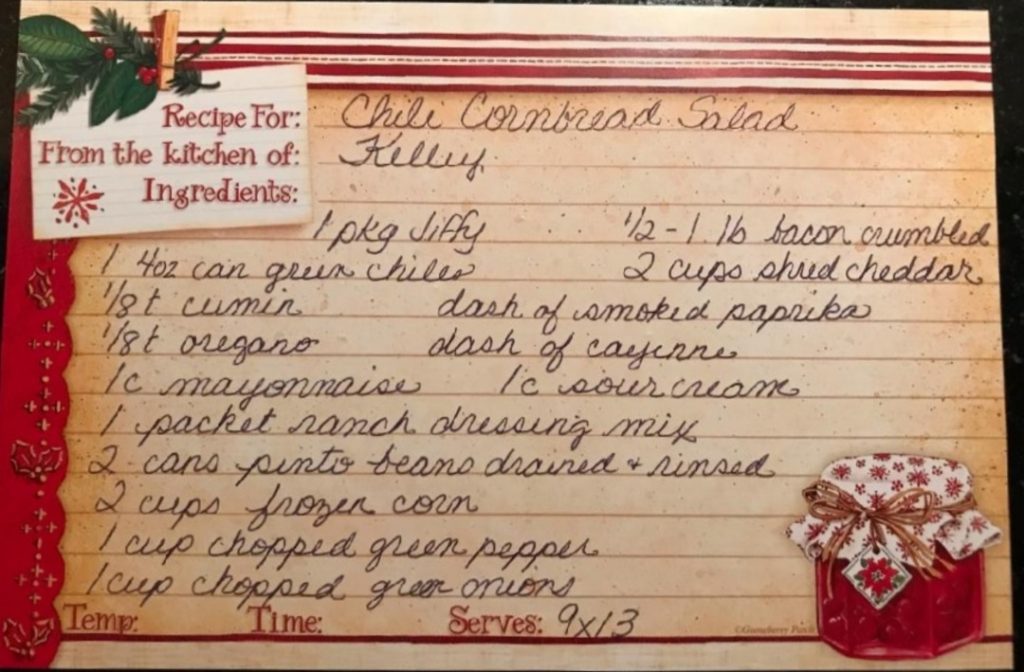 Recipe For: Chili Cornbread Salad
From the kitchen of: Kelley
Ingredients:
1 pkg Jiffy 1/2 - 1 lb bacon crumbled
1 4oz can green chiles 2 cups shred cheddar
1/8 t cumin dash of smoked paprika
1/8 t oregano dash of cayenne
1c mayonnaise 1c sour cream
1 packet ranch dressing mix
2 cans pinto beans drained + rinsed
2 cups frozen corn
1 cup chopped green pepper
1 cup chopped green onions
Temp: Time: Serves: 9x13
©Gooseberry Patch